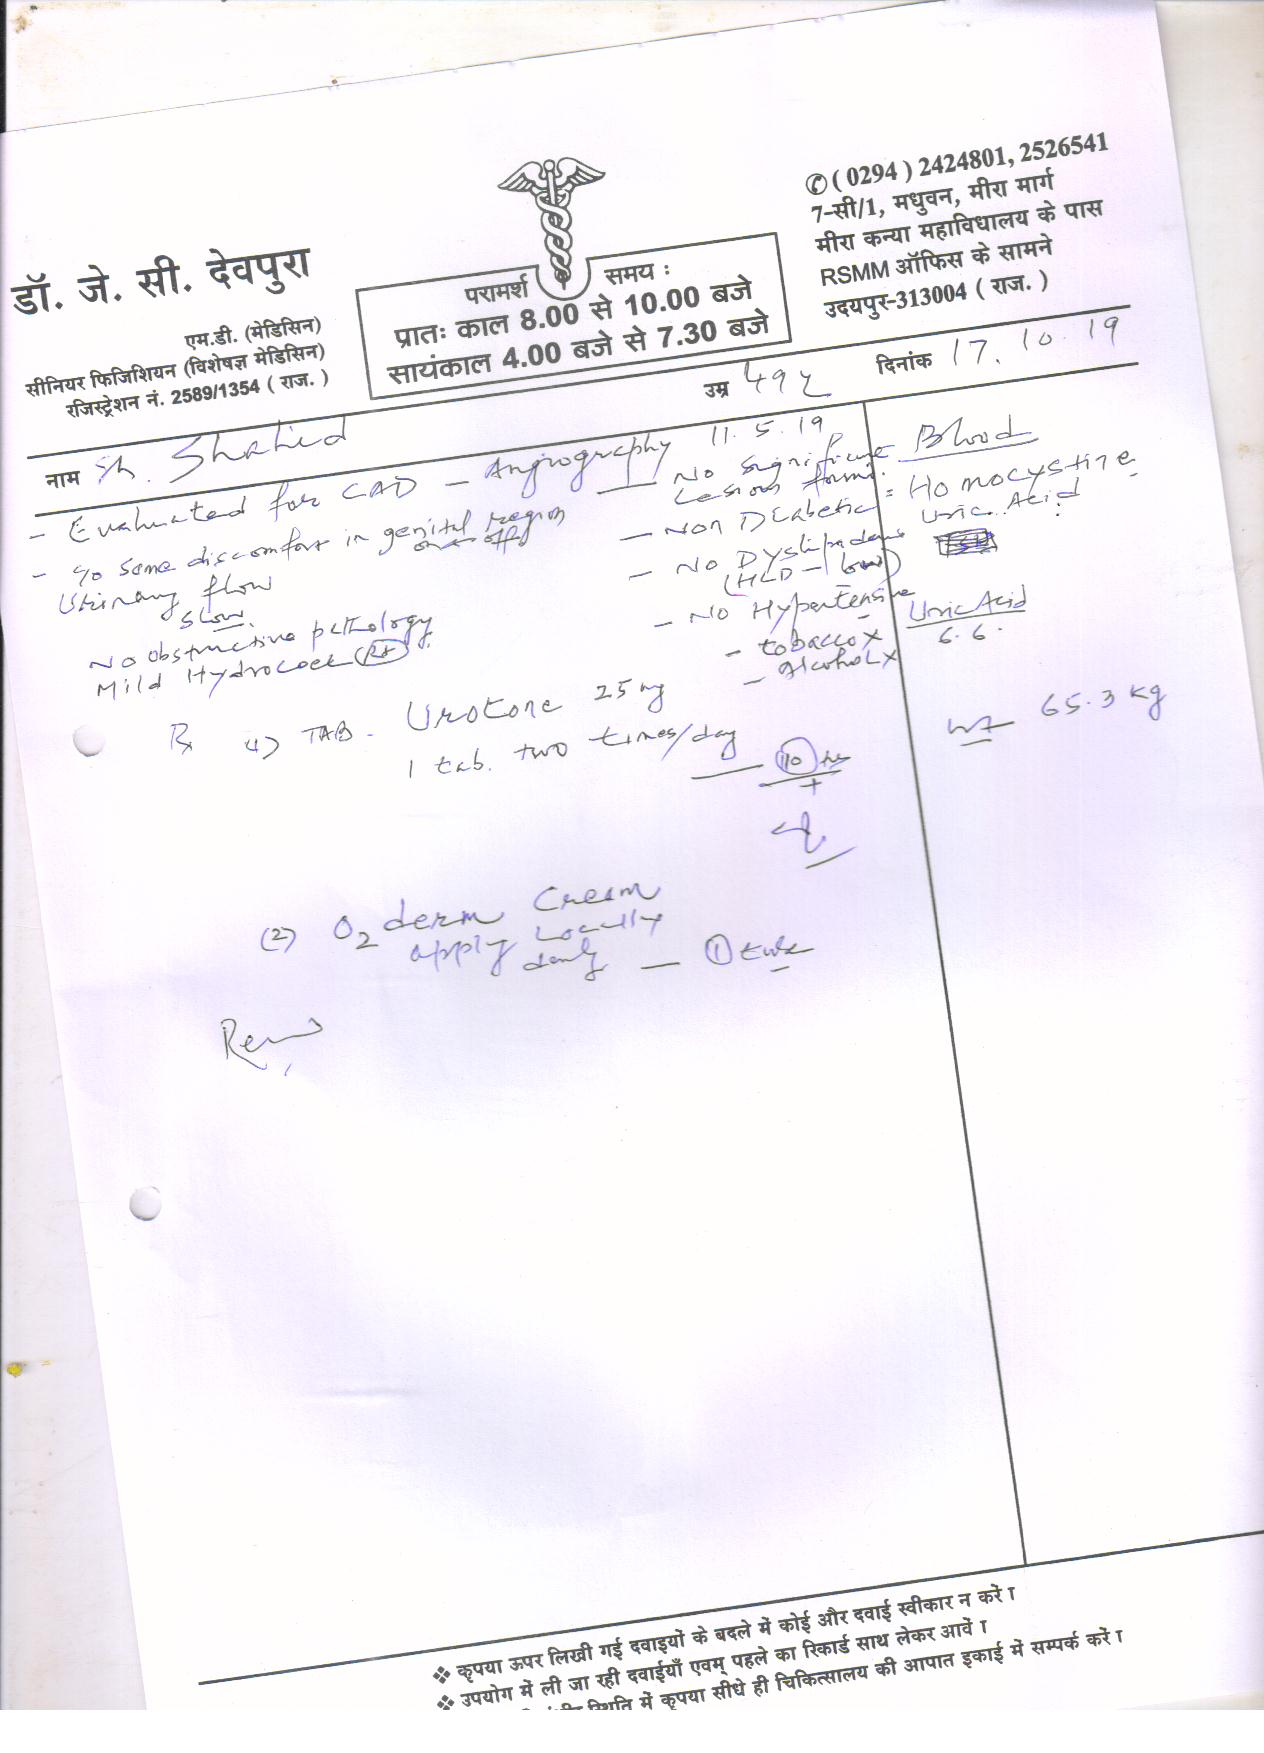 डॉ. जे. सी. देवपुरा
एम.डी. (मेडिसिन)
सीनियर फिजिशियन (विशेषज्ञ मेडिसिन)
रजिस्ट्रेशन नं. 2589/1354 ( राज. )
परामर्श समय :
प्रातः काल 8.00 से 10.00 बजे
सायंकाल 4.00 बजे से 7.30 बजे
✆ ( 0294 ) 2424801, 2526541
7-सी/1, मधुवन, मीरा मार्ग
मीरा कन्या महाविधालय के पास
RSMM ऑफिस के सामने
उदयपुर-313004 ( राज. )
नाम Sh. Shahid उम्र 49y दिनांक 17.10.19
- Evaluated for CAD - Angiography 11.5.19
- No significant
Lesions found.
- c/o some discomfort in genital region
on & off
Urinary flow
slow.
No obstructive pathology
Mild Hydrocoele (Rt)
- Non Diabetic
- No Dyslipidemia
(HLD - low)
- No Hypertensive
- tobacco x
- alcohol x
Blood
= Homocystine
Uric Acid
Uric Acid
6.6.
Wt 65.3 kg
Rx (1) TAB. Urotone 25 mg
1 tab. two times/day
(10)
(2) O2 derm Cream
apply Locally
daily - (1) tube
❖ कृपया ऊपर लिखी गई दवाइयों के बदले में कोई और दवाई स्वीकार न करें।
❖ उपयोग में ली जा रही दवाईयाँ एवम् पहले का रिकार्ड साथ लेकर आवें।
स्थिति में कृपया सीधे ही चिकित्सालय की आपात इकाई में सम्पर्क करें।